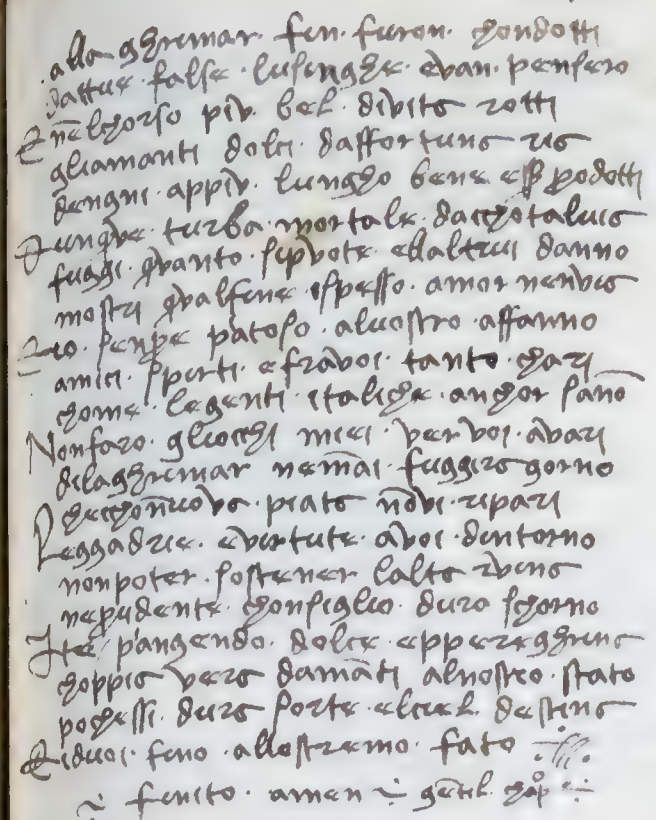 alla ghrimar. sen. furon. chondotti
dattue. false. lusinghe. evan. pensero
E nelchorso piv. bel. divite rotti
gliamanti dolci. daffortune rie
dengni. appiv. lungho bene esser prodotti
Dunque. turba. mortale. dacchotalvie
fuggi. quanto. sipuote. ellaltrui danno
mostri qualfine. ispesso. amor nenvie
Eio. senpre patoso. aluostro. affanno
amici. spirti. efravoi. tanto. chari
chome. legenti. italiche. anchor sanō
Nonfaro. gliocchi miei. ver voi. avari
dilaghrimar nemāi. fuggire gorno
checchonnuove. piate nōvi. ripari
Leggadrie. evirtute. avoi. dintorno
nonpoter. sostener lalte rvine
neprudente. chonsiglio. duro schorno
Ite piangendo. dolce. epperegrine
choppie vere damāti alnostro. stato
pochessi. dure sorte. elciel. destine
Eidvoi. fino. allostremo. fato
finito. amen gētil. chap̊